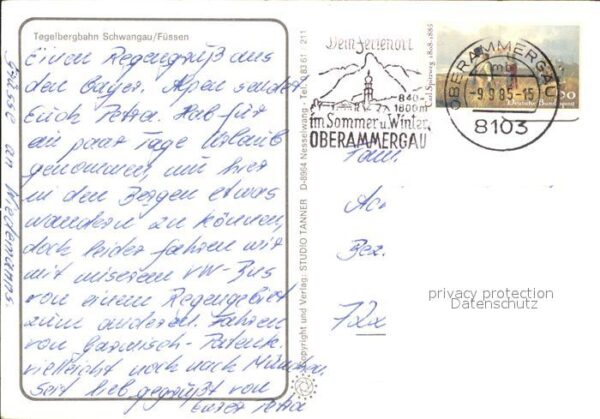 Tegelbergbahn Schwangau/Füssen
Einen Regengruß aus
den Bayer. Alpen sendet
Euch Petra. Hab für
ein paar Tage Urlaub
genommen, um hier
in den Bergen etwas
wandern zu können,
doch leider fahren wir
mit unserem VW-Bus
von einem Regengebiet
zum anderen. Fahren
von Garmisch-Patenk.
vielleicht noch nach München.
Seit lieb gegrüßt von
Eurer Petra
Grüsse an
Copyright und Verlag: STUDIO TANNER D-8964 Nesselwang - Tel. 211
Dein Ferienort
840-
1800 m
im Sommer u. Winter
OBERAMMERGAU
Carl Spitzweg 1808-1885
Deutsche Bundespost
OBERAMMERGAU
mb
-9.9.85-15
8103
Fam.
Bez.
privacy protection
Datenschutz